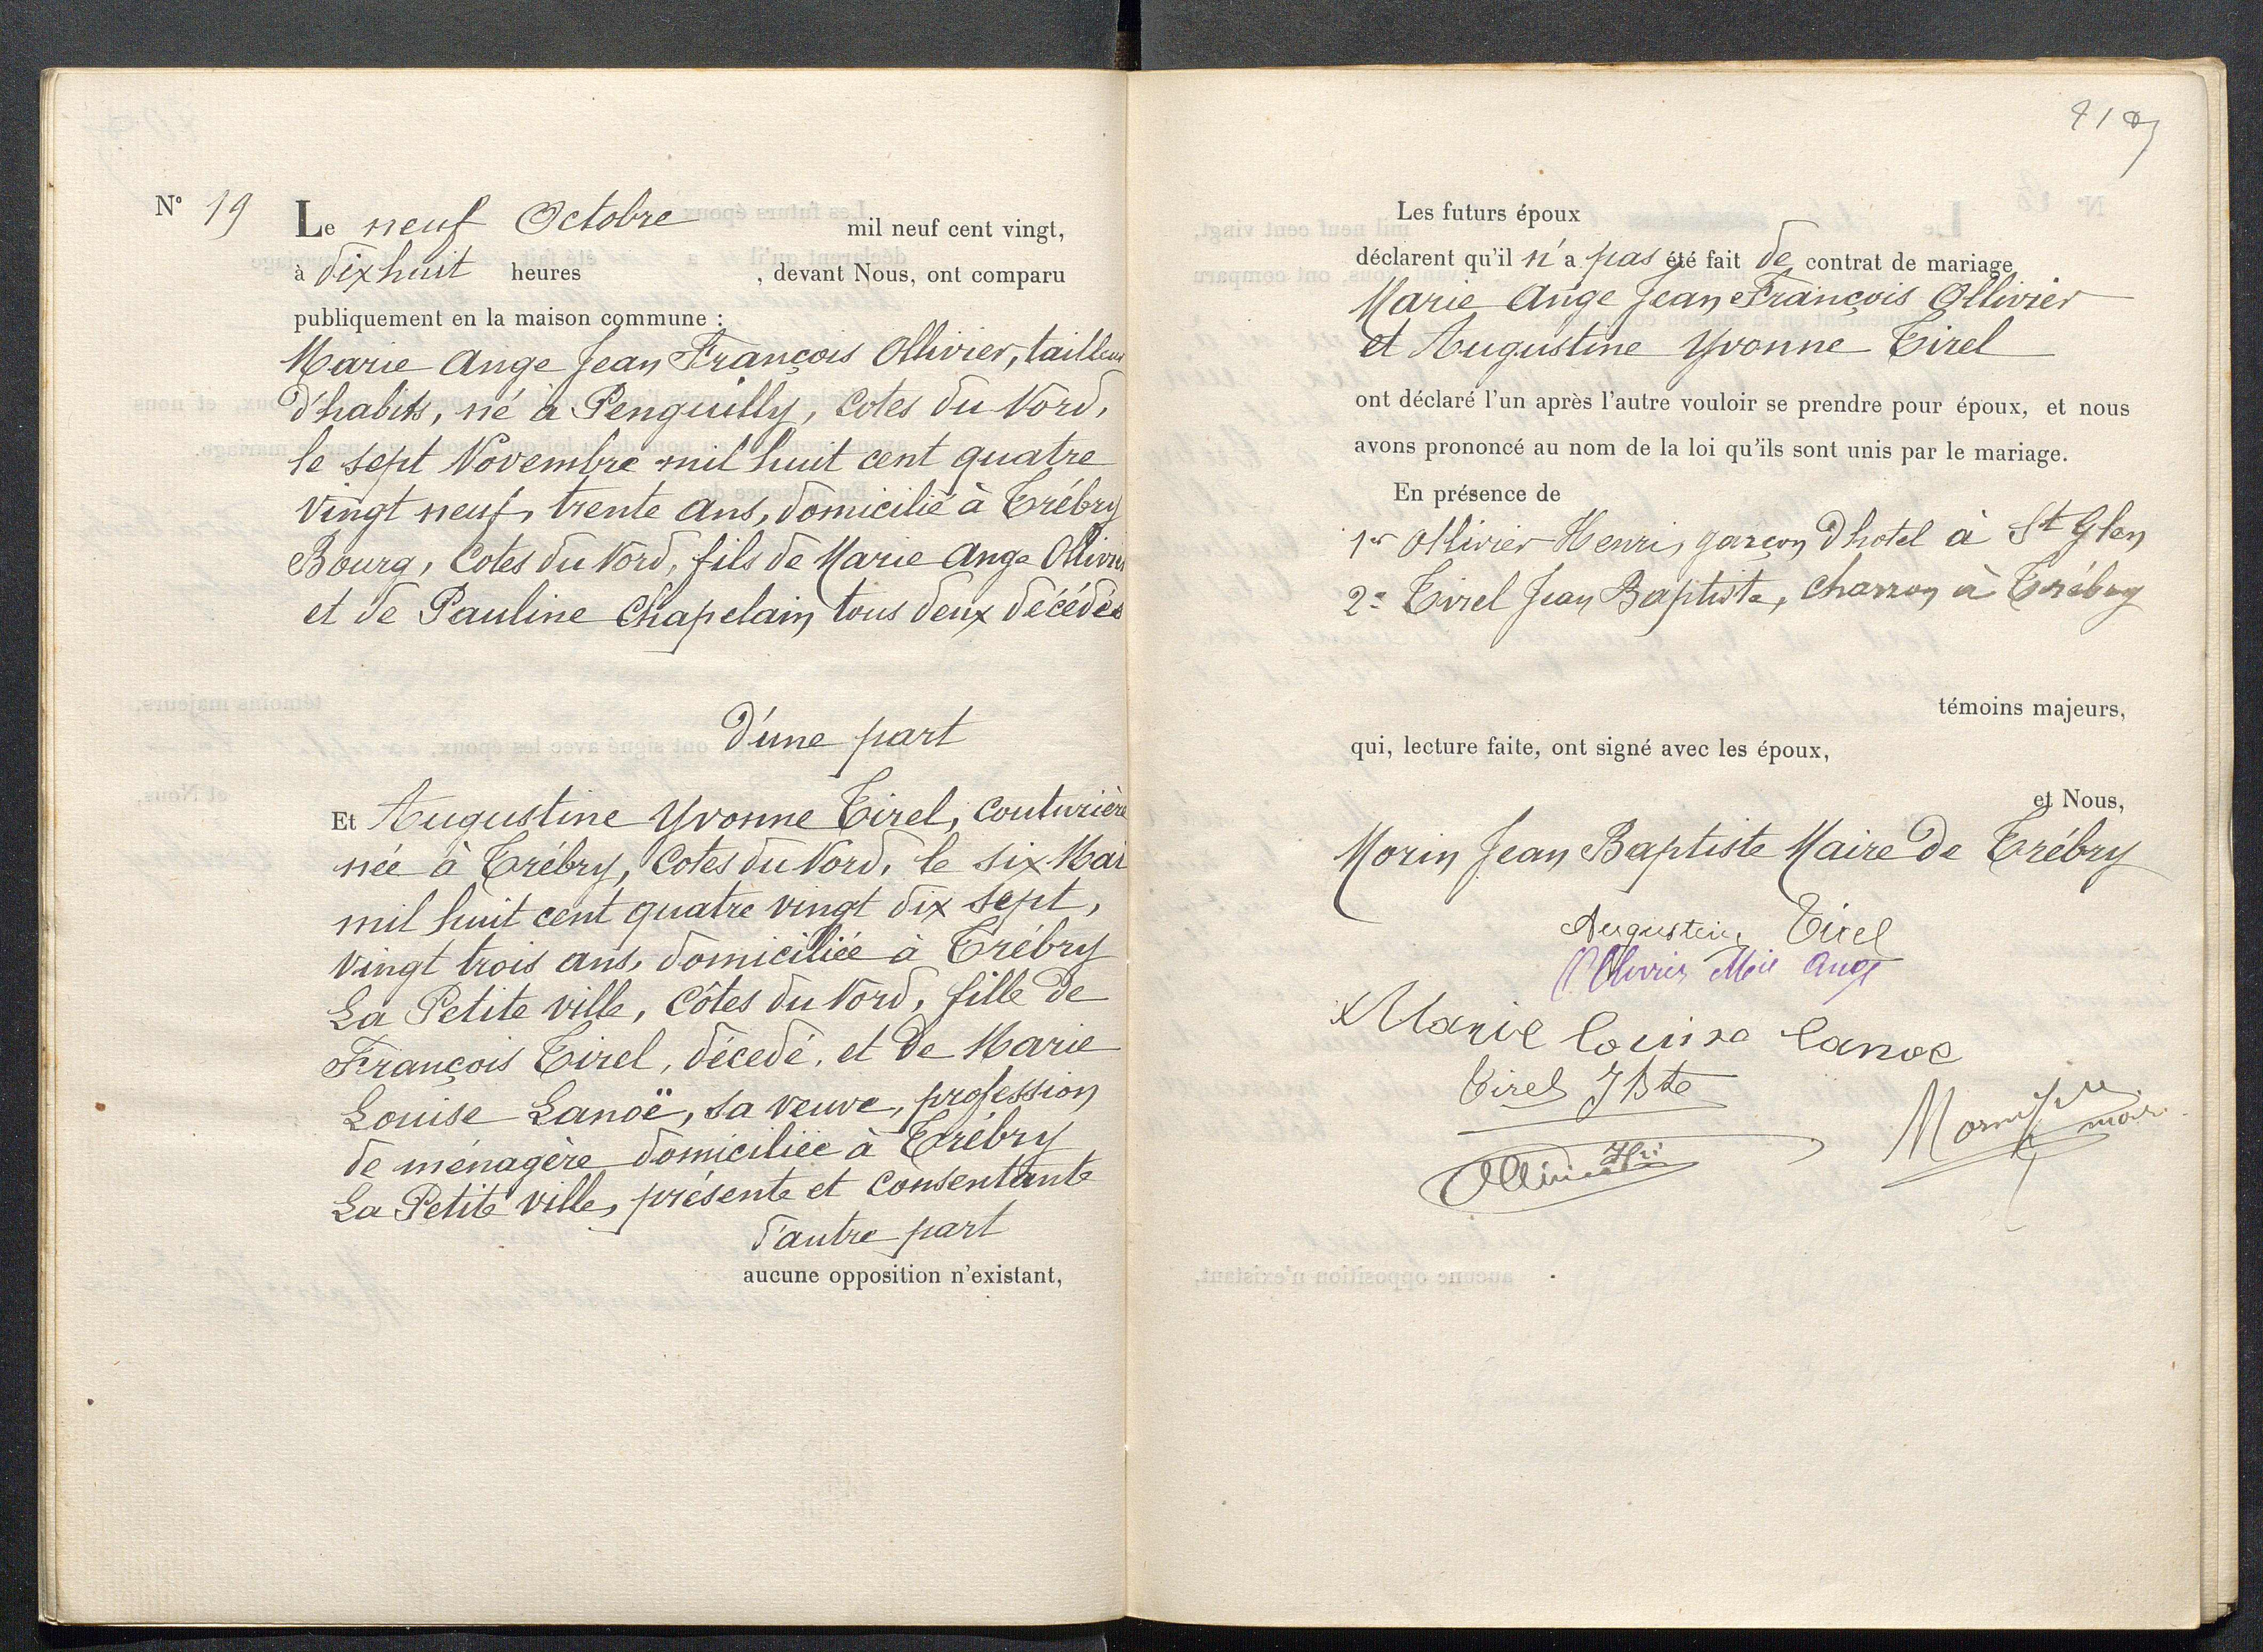 N° 19
Le neuf Octobre mil neuf cent vingt,
à dix huit heures , devant Nous, ont comparu
publiquement en la maison commune :
Marie Ange Jean François Ollivier, tailleur
d'habits, né à Penguilly, Cotes du Nord,
le sept Novembre mil huit cent quatre
vingt neuf, trente ans, domicilié à Trébry
Bourg, Cotes du Nord, fils de Marie Ange Ollivier
et de Pauline Chapelain, tous deux décédés
D'une part
Et Augustine Yvonne Tirel, Couturière
née à Trébry, Cotes du Nord, le six Mai
mil huit cent quatre vingt dix sept,
vingt trois ans, domiciliée à Trébry
La Petite ville, Côtes du Nord, fille de
François Tirel, décedé, et de Marie
Louise Lanoë, sa veuve, profession
de ménagère domiciliée à Trébry
La Petite ville, présente et consentante
d'autre part
aucune opposition n'existant,
Les futurs époux
déclarent qu'il n'a pas été fait de contrat de mariage
Marie Ange Jean François Ollivier
et Augustine Yvonne Tirel
ont déclaré l'un après l'autre vouloir se prendre pour époux, et nous
avons prononcé au nom de la loi qu'ils sont unis par le mariage.
En présence de
1er Ollivier Henri, garçon d'hotel à St Glen
2e Tirel Jean Baptiste, charron à Trébry
témoins majeurs,
qui, lecture faite, ont signé avec les époux,
et Nous,
Morin Jean Baptiste Maire de Trébry
Augustine Tirel
Ollivier Mie Ange
Marie louise lanoe
Tirel JBte
Ollivier Hri